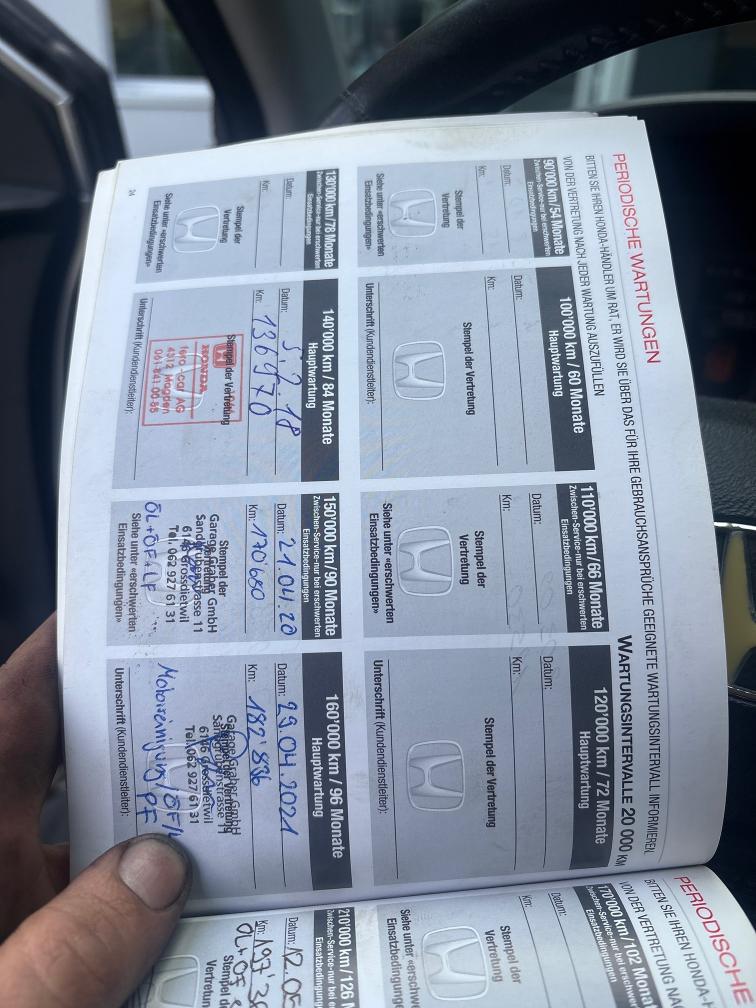 PERIODISCHE WARTUNGEN
BITTEN SIE IHREN HONDA-HÄNDLER UM RAT, ER WIRD SIE ÜBER DAS FÜR IHRE GEBRAUCHSANSPRÜCHE GEEIGNETE WARTUNGSINTERVALL INFORMIEREN.
VON DER VERTRETUNG NACH JEDER WARTUNG AUSZUFÜLLEN
WARTUNGSINTERVALLE 20 000 KM
90'000 km/54 Monate
Zwischen-Service-nur bei erschwerten
Einsatzbedingungen
Datum:
Km:
Stempel der
Vertretung
Siehe unter «erschwerten
Einsatzbedingungen»
100'000 km / 60 Monate
Hauptwartung
Datum:
Km:
Stempel der Vertretung
Unterschrift (Kundendienstleiter):
110'000 km/66 Monate
Zwischen-Service-nur bei erschwerten
Einsatzbedingungen
Datum:
Km:
Stempel der
Vertretung
Siehe unter «erschwerten
Einsatzbedingungen»
120'000 km / 72 Monate
Hauptwartung
Datum:
Km:
Stempel der Vertretung
Unterschrift (Kundendienstleiter):
130'000 km/78 Monate
Zwischen-Service-nur bei erschwerten
Einsatzbedingungen
Datum:
Km:
Stempel der
Vertretung
Siehe unter «erschwerten
Einsatzbedingungen»
140'000 km / 84 Monate
Hauptwartung
Datum: 5.2.18
Km: 136970
Stempel der Vertretung
HONDA
4312 Magden
061-841 00 88
Unterschrift (Kundendienstleiter):
150'000 km/90 Monate
Zwischen-Service-nur bei erschwerten
Einsatzbedingungen
Datum: 21.04.20
Km: 170'680
Stempel der
Vertretung
Garage Graber GmbH
Sandgrubenstrasse 11
6146 Grossdietwil
Tel. 062 927 61 31
ÖL+ÖF+LF
Siehe unter «erschwerten
Einsatzbedingungen»
160'000 km / 96 Monate
Hauptwartung
Datum: 29.04.2021
Km: 182'836
Stempel der Vertretung
Garage Graber GmbH
Sandgrubenstrasse 11
6146 Grossdietwil
Tel. 062 927 61 31
Motorreinigung/ÖF/
PF
Unterschrift (Kundendienstleiter):
24
PERIODISCHE
BITTEN SIE IHREN HONDA-
VON DER VERTRETUNG NA
170'000 km/102 Mon
Zwischen-Service-nur bei erschwer
Einsatzbedingungen
Datum:
Km:
Stempel der
Vertretung
Siehe unter «erschwe
Einsatzbedingungen
210'000 km/126 M
Zwischen-Service-nur bei
Einsatzbedin
Datum: 12.05
Km: 197'3
Stempel d
Vertretun